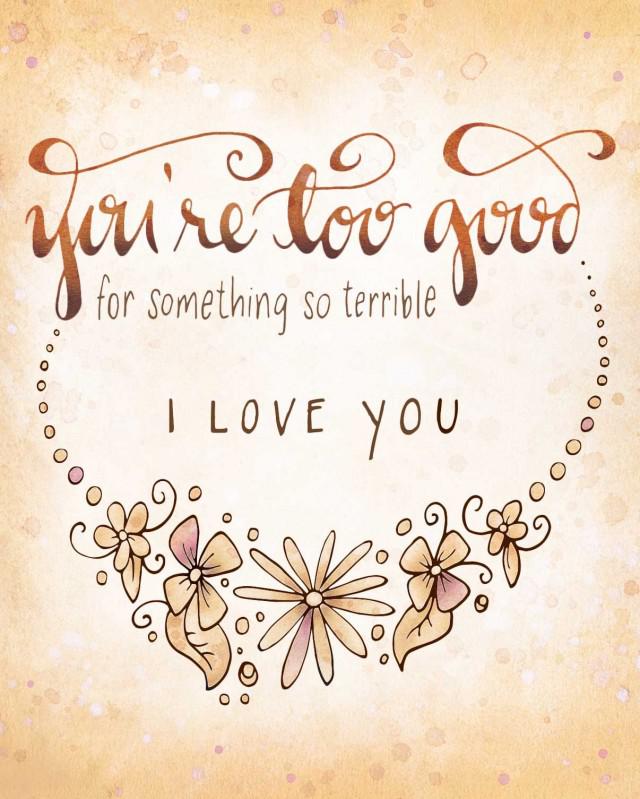 you're too good
for something so terrible
I LOVE YOU